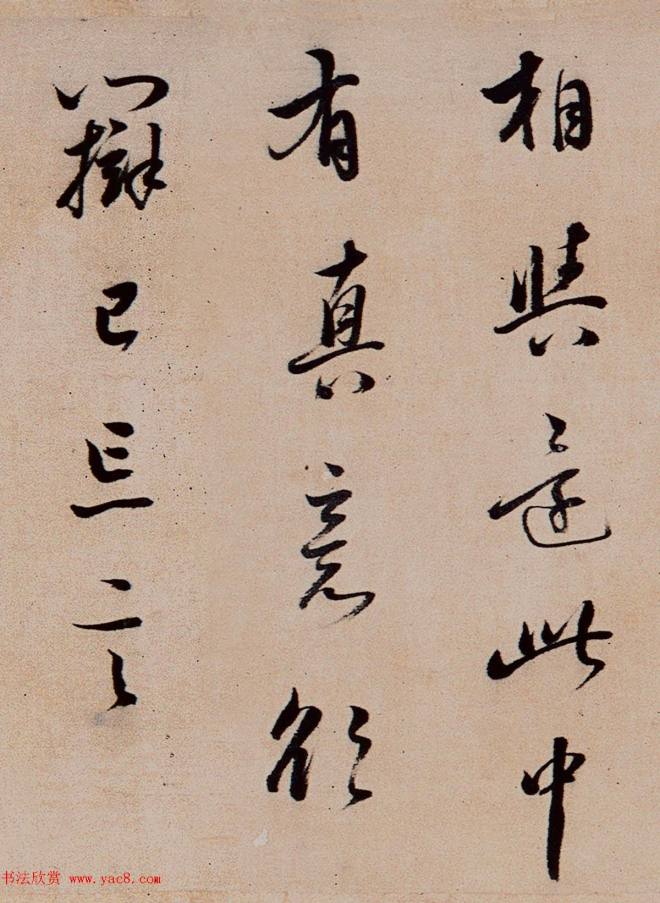 相與還此中
有真意欲
辯已忘言
书法欣赏 www.yac8.com